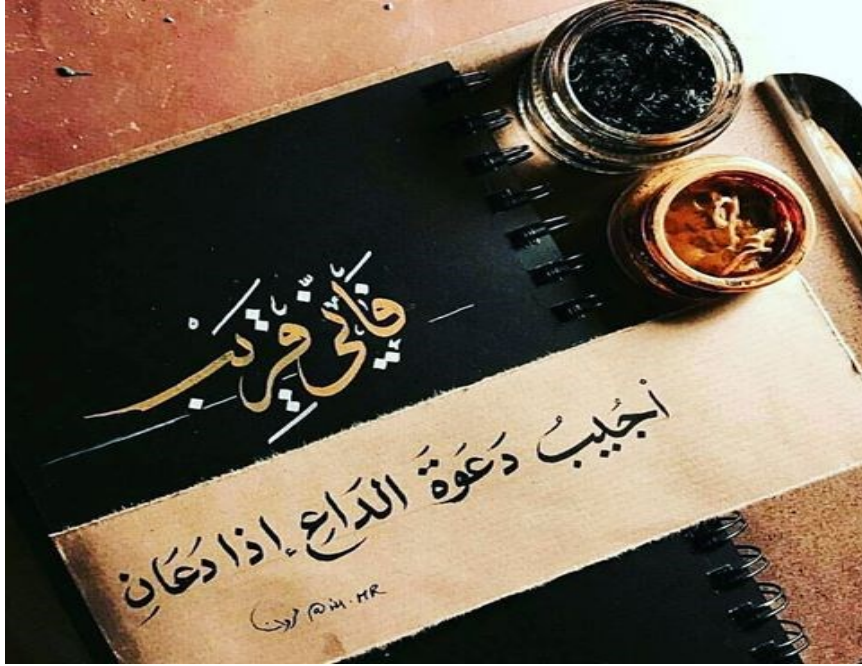 فَإِنِّي قَرِيبٌ
أُجُيبُ دَعَوةَ الدَاعِ إذا دَعَانِ